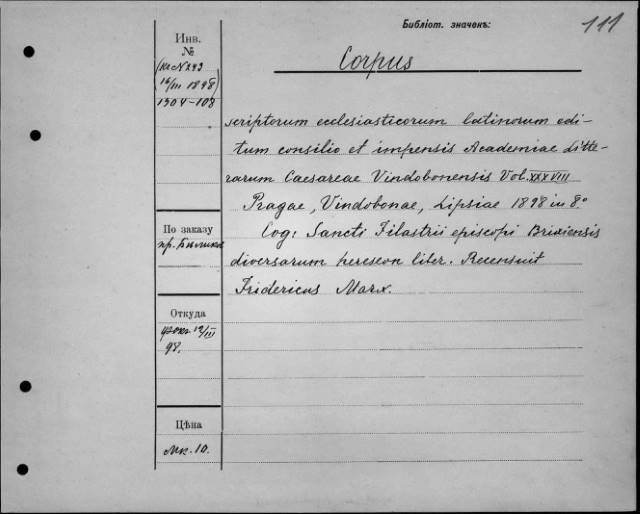 Библіот. значекъ:
111
Инв.
№
(Кс № 293
12/III 1898)
1304-108
Corpus
scriptorum ecclesiasticorum latinorum edi-
tum consilio et impensis Academiae Litte-
rarum Caesareae Vindobonensis Vol. XXXVIII
Pragae, Vindobonae, Lipsiae 1898 in 8.°
Cog: Sancti Filastrii episcopi Brixiensis
diversarum hereseon liber. Recensuit
Fridericus Marx.
По заказу
пр.
Откуда
12/III
98.
Цѣна
Мк. 10.